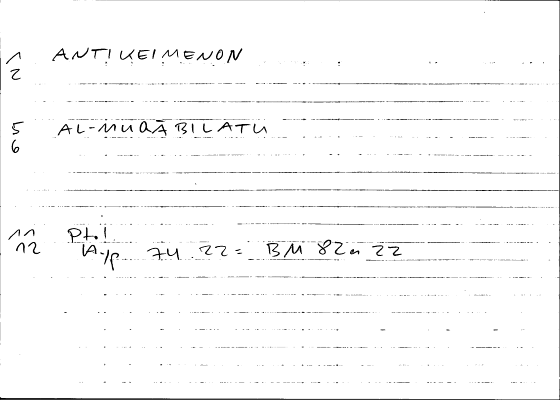 1 ANTIKEIMENON
2
5 AL-MUQĀBILATU
6
11 Ptol
12 Hyp 74 22 = BM 82a 22